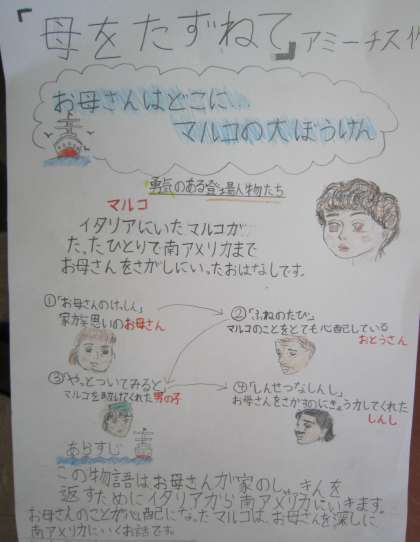 『母をたずねて』アミーチス作
お母さんはどこに…
マルコの大ぼうけん
勇気のある登場人物たち
マルコ
イタリアにいたマルコが
たったひとりで南アメリカまで
お母さんをさがしにいったおはなしです。
①「お母さんのけっしん」
家族思いのお母さん
②「ふねのたび」
マルコのことをとても心配している
おとうさん
③「やっとついてみると」
マルコを助けてくれた男の子
④「しんせつなしんし」
お母さんをさがすのにきょう力してくれた
しんし
あらすじ
この物語はお母さんが家のしゃっきんを
返すためにイタリアから南アメリカにいきます。
お母さんのことが心配になったマルコは、お母さんを探しに
南アメリカにいくお話です。